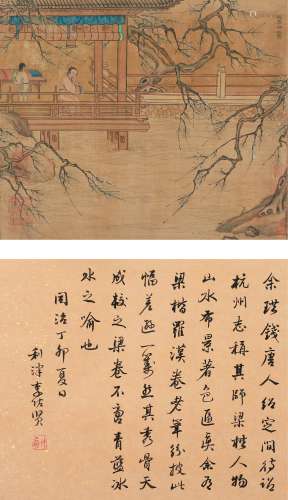 余珙錢唐人紹定間待詔
杭州志稱其師梁楷人物
山水布景著色逼真余有
梁楷羅漢卷老筆紛披此
幅差遜一籌然其秀骨天
成較之梁卷不啻青藍冰
水之喻也
同治丁卯夏日
利津李佐賢